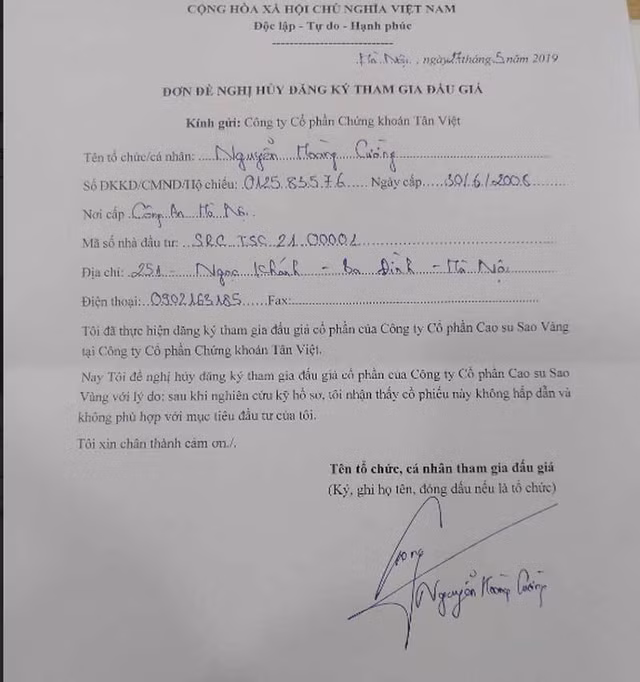 CỘNG HÒA XÃ HỘI CHỦ NGHĨA VIỆT NAM
Độc lập - Tự do - Hạnh phúc
Hà Nội, ngày tháng 5 năm 2019
ĐƠN ĐỀ NGHỊ HỦY ĐĂNG KÝ THAM GIA ĐẤU GIÁ
Kính gửi: Công ty Cổ phần Chứng khoán Tân Việt
Tên tổ chức/cá nhân: Nguyễn Hoàng Cường
Số ĐKKD/CMND/Hộ chiếu: 0125.83.5.76 Ngày cấp 30/6/2006
Nơi cấp Công An Hà Nội
Mã số nhà đầu tư: SRC TSC 21 00001
Địa chỉ: 251 - Ngọc Khánh - Ba Đình - Hà Nội
Điện thoại: 0902163185 Fax:
Tôi đã thực hiện đăng ký tham gia đấu giá cổ phần của Công ty Cổ phần Cao su Sao Vàng
tại Công ty Cổ phần Chứng khoán Tân Việt.
Nay Tôi đề nghị hủy đăng ký tham gia đấu giá cổ phần của Công ty Cổ phần Cao su Sao
Vàng với lý do: sau khi nghiên cứu kỹ hồ sơ, tôi nhận thấy cổ phiếu này không hấp dẫn và
không phù hợp với mục tiêu đầu tư của tôi.
Tôi xin chân thành cám ơn./.
Tên tổ chức, cá nhân tham gia đấu giá
(Ký, ghi họ tên, đóng dấu nếu là tổ chức)
Nguyễn Hoàng Cường